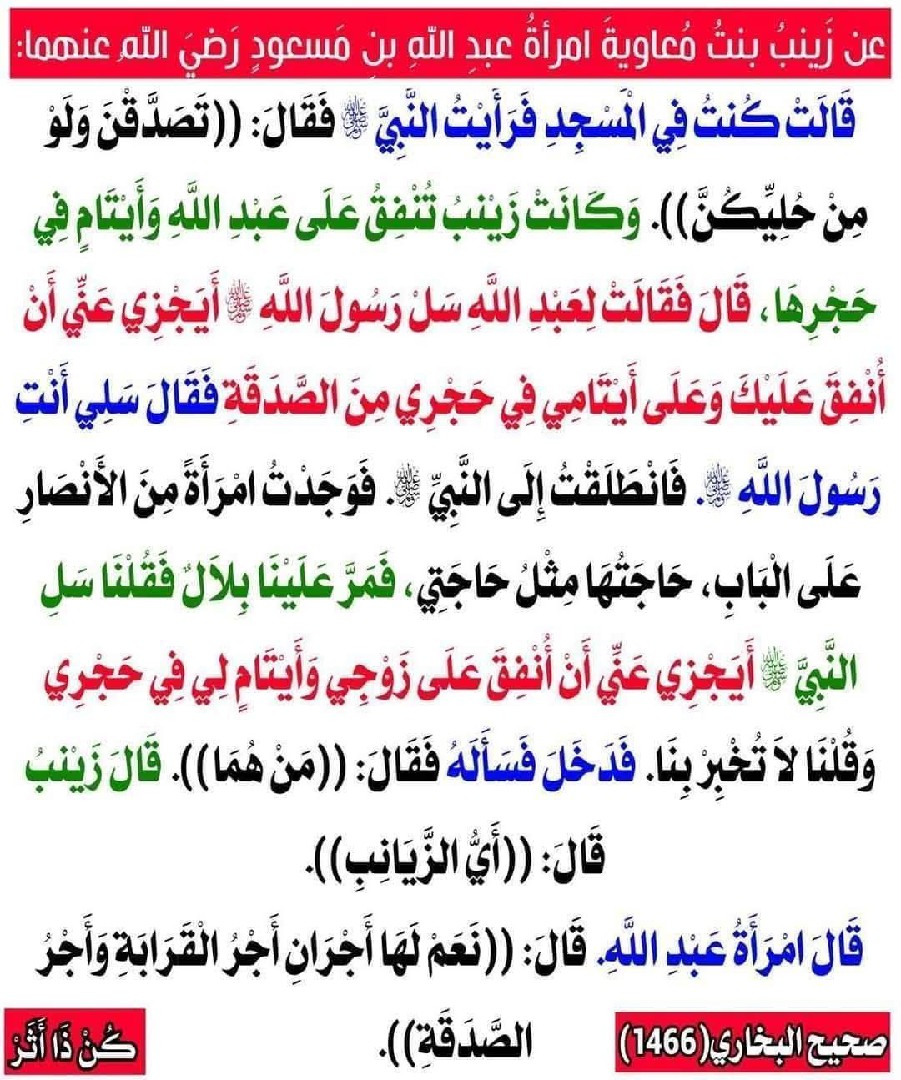 عن زَينبُ بنتُ مُعاويةَ امرأةُ عبدِ اللّهِ بنِ مَسعودٍ رَضيَ اللّه عنهما:
قَالَتْ كُنتُ فِي الْمَسْجِدِ فَرَأَيْتُ النَّبِيَّ ﷺ فَقَالَ: ((تَصَدَّقْنَ وَلَوْ
مِنْ حُلِيِّكُنَّ)). وَكَانَتْ زَيْنبُ تُنْفِقُ عَلَى عَبْدِ اللَّهِ وَأَيْتَامٍ فِي
حَجْرِهَا، قَالَ فَقَالَتْ لِعَبْدِ اللَّهِ سَلْ رَسُولَ اللَّهِ ﷺ أَيَجْزِي عَنِّي أَنْ
أُنْفِقَ عَلَيْكَ وَعَلَى أَيْتَامِي فِي حَجْرِي مِنَ الصَّدَقَةِ فَقَالَ سَلِي أَنْتِ
رَسُولَ اللَّهِ ﷺ. فَانْطَلَقْتُ إِلَى النَّبِيِّ ﷺ. فَوَجَدْتُ امْرَأَةً مِنَ الأَنْصَارِ
عَلَى الْبَابِ، حَاجَتُهَا مِثْلُ حَاجَتِي، فَمَرَّ عَلَيْنَا بِلاَلٌ فَقُلْنَا سَلِ
النَّبِيَّ ﷺ أَيَجْزِي عَنِّي أَنْ أُنْفِقَ عَلَى زَوْجِي وَأَيْتَامٍ لِي فِي حَجْرِي
وَقُلْنَا لاَ تُخْبِرْ بِنَا. فَدَخَلَ فَسَأَلَهُ فَقَالَ: ((مَنْ هُمَا)). قَالَ زَيْنبُ
قَالَ: ((أَيُّ الزَّيَانِبِ)).
قَالَ امْرَأَةُ عَبْدِ اللَّهِ. قَالَ: ((نَعَمْ لَهَا أَجْرَانِ أَجْرُ الْقَرَابَةِ وَأَجْرُ
الصَّدَقَةِ)).
صحيح البخاري(1466)
كُنْ ذَا أَثَرْ